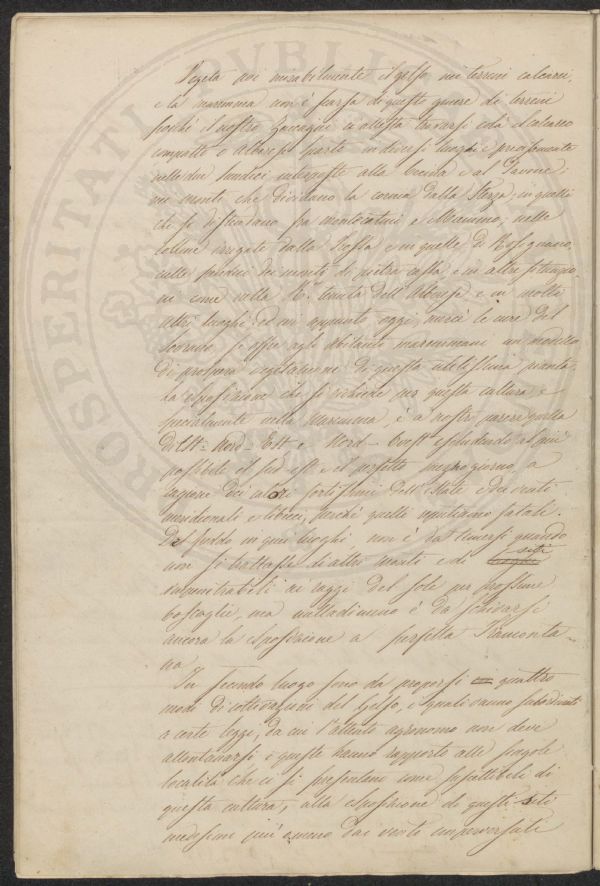 Vegeta poi mirabilmente il gelso nei terreni calcarei,
e la maremma non è scarsa di questo genere di terreni
poichè il nostro ci attesta trovarsi colà il calcareo
compatto o Alberese sparso in diversi luoghi e precisamente
nelle due interposte alla e al Pavone;
nei monti, che dividono la Cornia dalla Sterza; in quelli
che si distendono fra Montecatini e Miemmo; nelle
colline irrigate dalla e in quelle di Rosignano,
nelle pendici dei monti di pietra e in altre
ni come nella R.a tenuta dell' Alberese e in molti
altri luoghi, ed ivi appunto oggi, mercè le cure del
Sovrano, si offre agli abitanti maremmani un modello
di prospera vegetazione di questa utilissima pianta.
La esposizione che si richiede per questa cultura e
specialmente nella Maremma, è a nostro parere quella
di Est = Nord-Est e Nord-Ovest escludendo il più
possibile il Sud-est e il perfetto mezzogiorno, a
cagione dei calori fortissimi dell' Estate e dei venti
meridionali e libecci, perchè quelli reputiamo fatali.
Del freddo in quei luoghi non è da temersi quando
non si trattasse di altri monti e di siti
impenetrabili ai raggi del Sole per prossime
boscaglie, ma nulladimeno è da schivarsi
ancora la esposizione a perfetta Tramonta-
na.
In secondo luogo sono da proporsi quattro
modi di coltivazioni del Gelso, i quali vanno subordinati
a certe leggi, da cui l'attento agronomo non deve
allontanarsi e queste hanno rapporto alle singole
località che ci si presentano come suscettibili di
questa cultura, alla esposizione di questi siti
medesimi più o meno dai venti imperversati
PROSPERITATI PVBLICAE